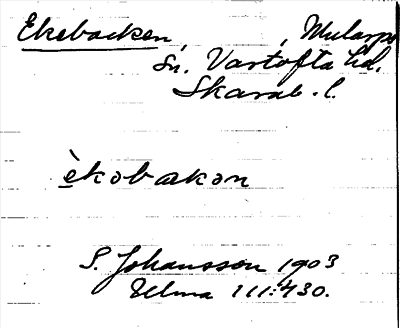 Ekebacken, , Mularps
sn. Vartofta hd.
Skarab. l.
èkobakən
S. Johansson 1903
Ulma 111:430.